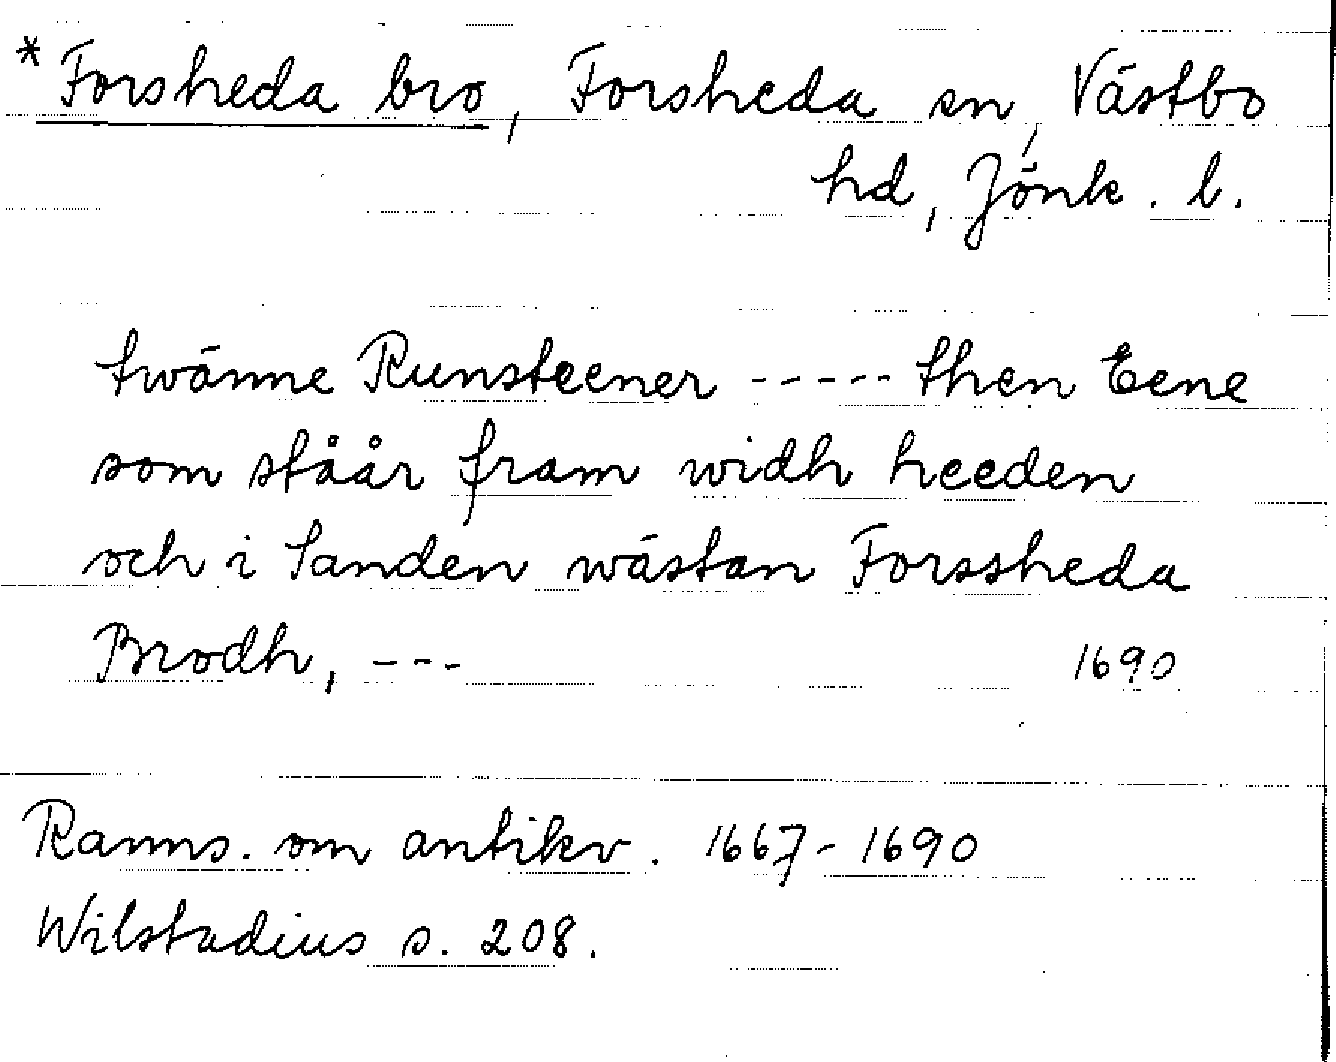 *Forsheda bro, Forsheda sn, Västbo
hd, Jönk. l.
twänne Runsteener ----- then Eene
som ståår fram widh heeden
och i Sanden wästan Forssheda
Brodh, --- 1690
Ranns. om antikv. 1667-1690
Wilstadius s. 208.